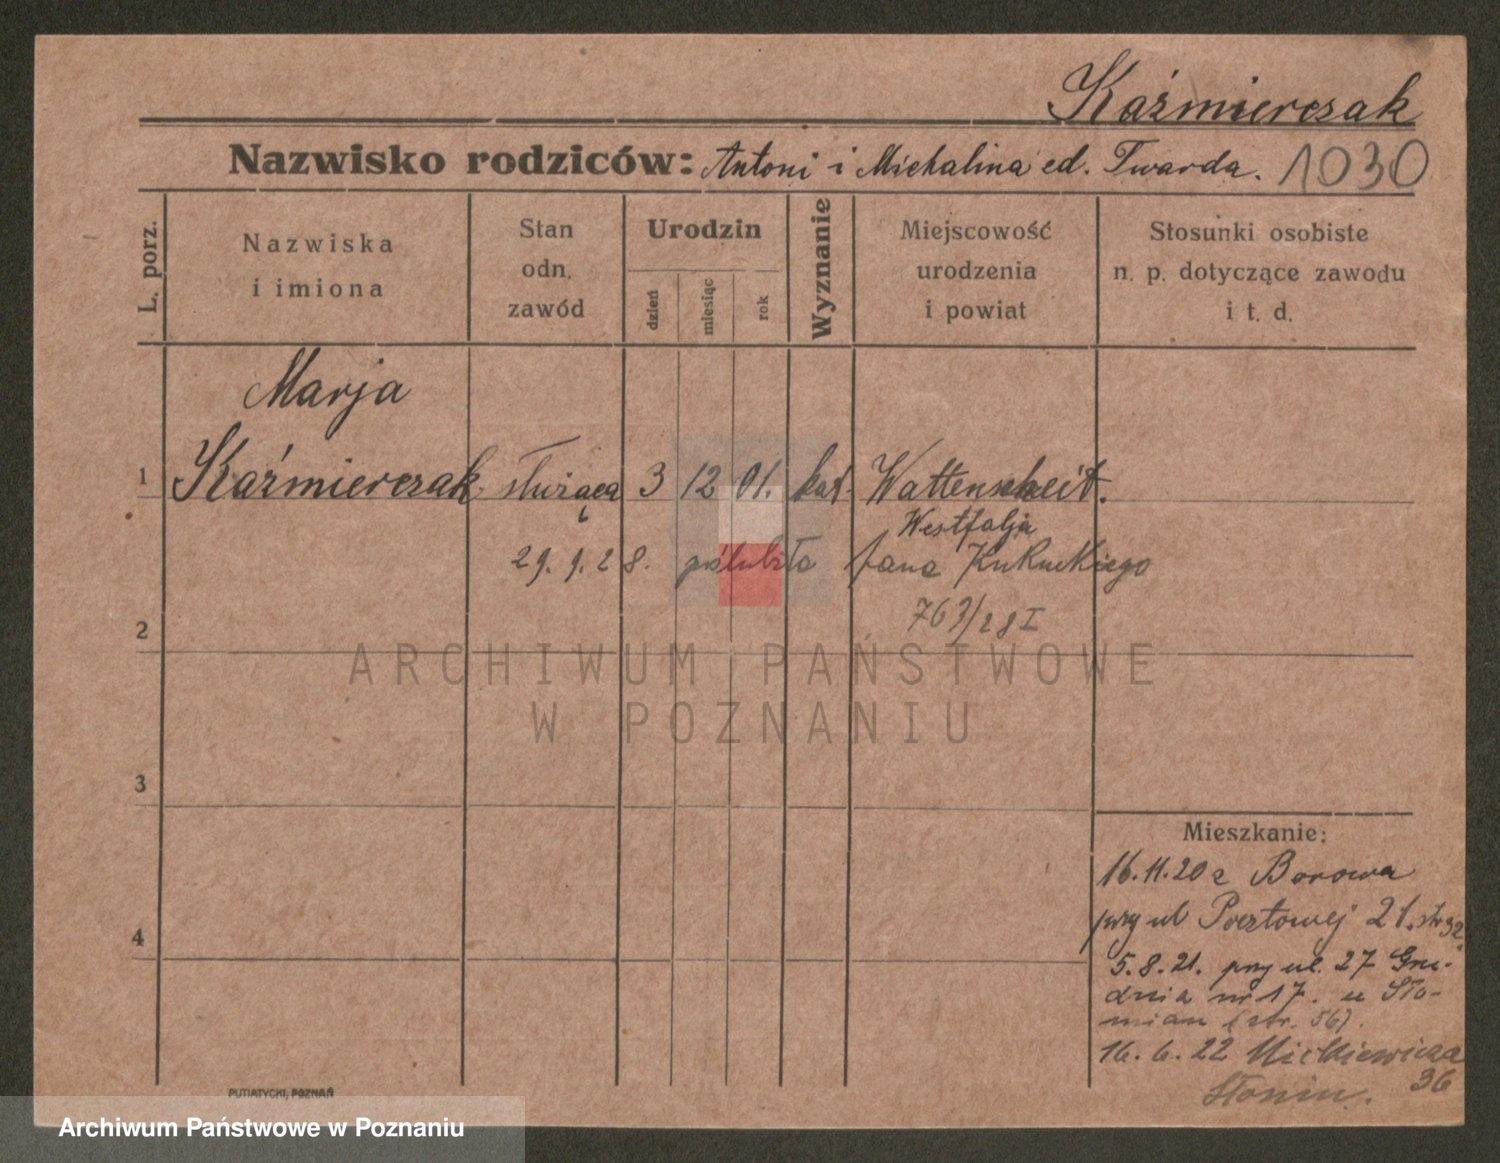 Kaźmierczak
Nazwisko rodziców: Antoni i Michalina ed. Twarda. 1030
L. porz.
Nazwiska
i imiona
Stan
odn.
zawód
Urodzin
dzień
miesiąc
rok
Wyznanie
Miejscowość
urodzenia
i powiat
Stosunki osobiste
n. p. dotyczące zawodu
i t. d.
Marja
1 Kaźmierczak służąca 3 12 01. kat. Wattenscheit.
Westfalja
29.9.28. poślubiła Jana Kukuckiego
763/28 I
2
3
4
ARCHIWUM PAŃSTWOWE
W POZNANIU
Mieszkanie:
16.11.20 z Borowa
przy ul Pocztowej 21. str 32.
5.8.21. przy ul. 27 Gru-
dnia nr 17. u Sło-
mian (str. 56).
16.6.22 Mickiewicza
36
PUTIATYCKI, POZNAŃ
Archiwum Państwowe w Poznaniu